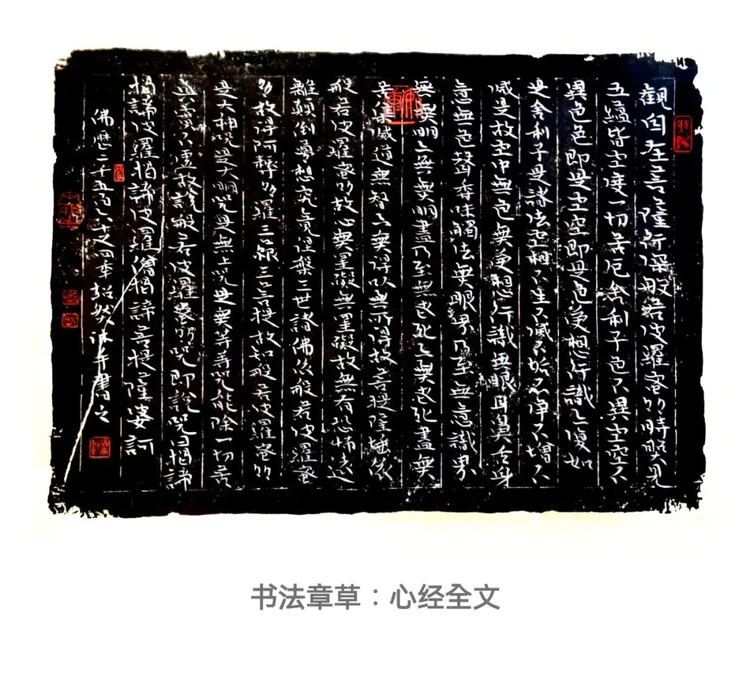 觀自在菩薩行深般若波羅蜜多時照見
五蘊皆空度一切苦厄舍利子色不異空空不
異色色即是空空即是色受想行識亦復如
是舍利子是諸法空相不生不滅不垢不淨不增不
減是故空中無色無受想行識無眼耳鼻舌身
意無色聲香味觸法無眼界乃至無意識界
無無明亦無無明盡乃至無老死亦無老死盡無
苦集滅道無智亦無得以無所得故菩提薩埵依
般若波羅蜜多故心無罣礙無罣礙故無有恐怖遠
離顛倒夢想究竟涅槃三世諸佛依般若波羅蜜
多故得阿耨多羅三藐三菩提故知般若波羅蜜多
是大神咒是大明咒是無上咒是無等等咒能除一切苦
真實不虛故說般若波羅蜜多咒即說咒曰揭諦
揭諦波羅揭諦波羅僧揭諦菩提薩婆訶
佛歷二千五百六十四年 書之
书法章草：心经全文